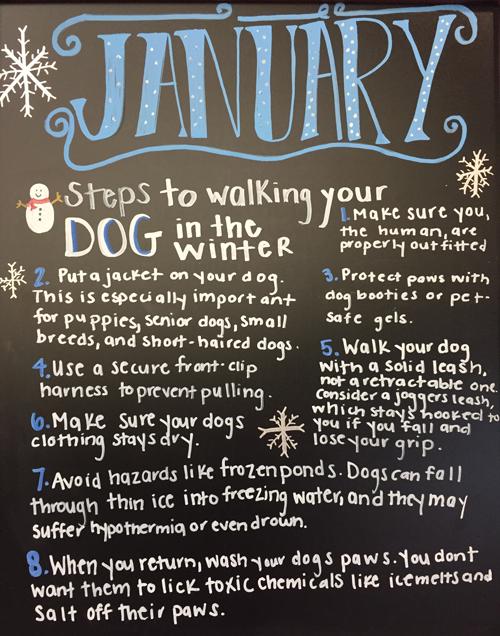 JANUARY
Steps to walking your
DOG in the
winteR
1. Make sure you,
the human, are
properly outfitted
2. Put a jacket on your dog.
This is especially important
for puppies, senior dogs, small
breeds, and short-haired dogs.
3. Protect paws with
dog booties or pet-
safe gels.
4. Use a secure front-clip
harness to prevent pulling.
5. Walk your dog
with a solid leash,
not a retractable one.
Consider a joggers leash,
which stays hooked to
you if you fall and
lose your grip.
6. Make sure your dogs
clothing stays dry.
7. Avoid hazards like frozen ponds. Dogs can fall
through thin ice into freezing water, and they may
suffer hypothermia or even drown.
8. When you return, wash your dogs paws. You dont
want them to lick toxic chemicals like icemelts and
salt off their paws.